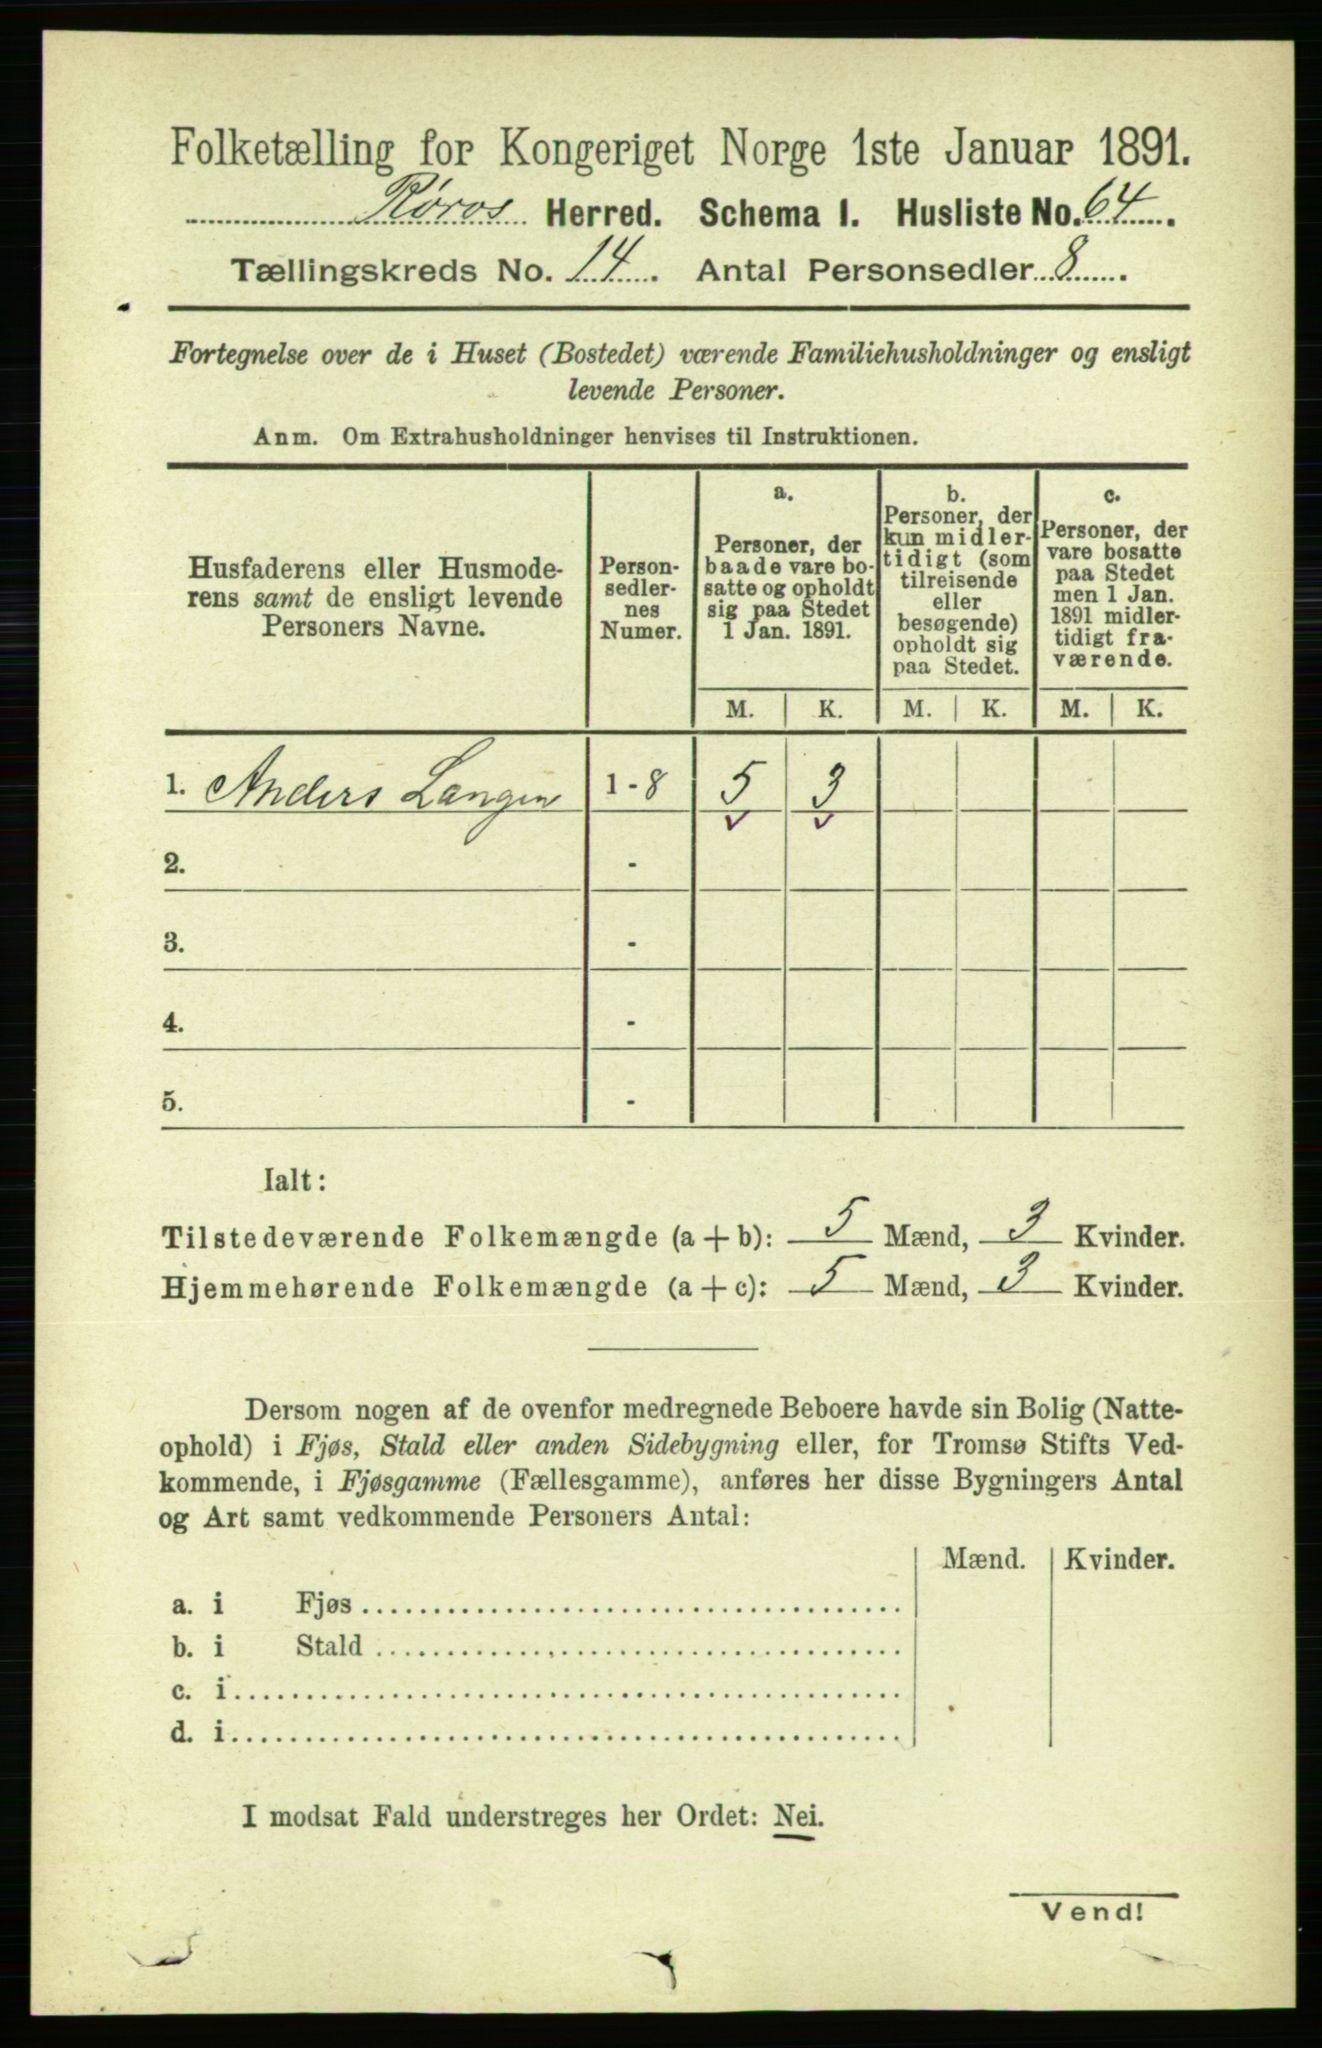 Folketælling for Kongeriget Norge 1ste Januar 1891.
Røros Herred. Schema 1. Husliste No. 64.
Tællingskreds No. 14. Antal Personsedler 8.
Fortegnelse over de i Huset (Bostedet) værende Familiehusholdninger og ensligt
levende Personer.
Anm. Om Extrahusholdninger henvises til Instruktionen.
Husfaderens eller Husmode-
rens samt de ensligt levende
Personers Navne.
Person-
sedler-
nes
Numer.
a.
Personer, der
baade vare bo-
satte og opholdt
sig paa Stedet
1 Jan. 1891.
b.
Personer, der
kun midler-
tidigt (som
tilreisende
eller
besøgende)
opholdt sig
paa Stedet.
c.
Personer, der
vare bosatte
paa Stedet
men 1 Jan.
1891 midler-
tidigt fra-
værende.
M. K. M. K. M. K.
1. Anders Langen 1-8 5 3
2. -
3. -
4. -
5. -
Ialt:
Tilstedeværende Folkemængde (a + b): 5 Mænd, 3 Kvinder.
Hjemmehørende Folkemængde (a + c): 5 Mænd, 3 Kvinder.
Dersom nogen af de ovenfor medregnede Beboere havde sin Bolig (Natte-
ophold) i Fjøs, Stald eller anden Sidebygning eller, for Tromsø Stifts Ved-
kommende, i Fjøsgamme (Fællesgamme), anføres her disse Bygningers Antal
og Art samt vedkommende Personers Antal:
Mænd. Kvinder.
a. i Fjøs
b. i Stald
c. i
d. i
I modsat Fald understreges her Ordet: Nei.
Vend!